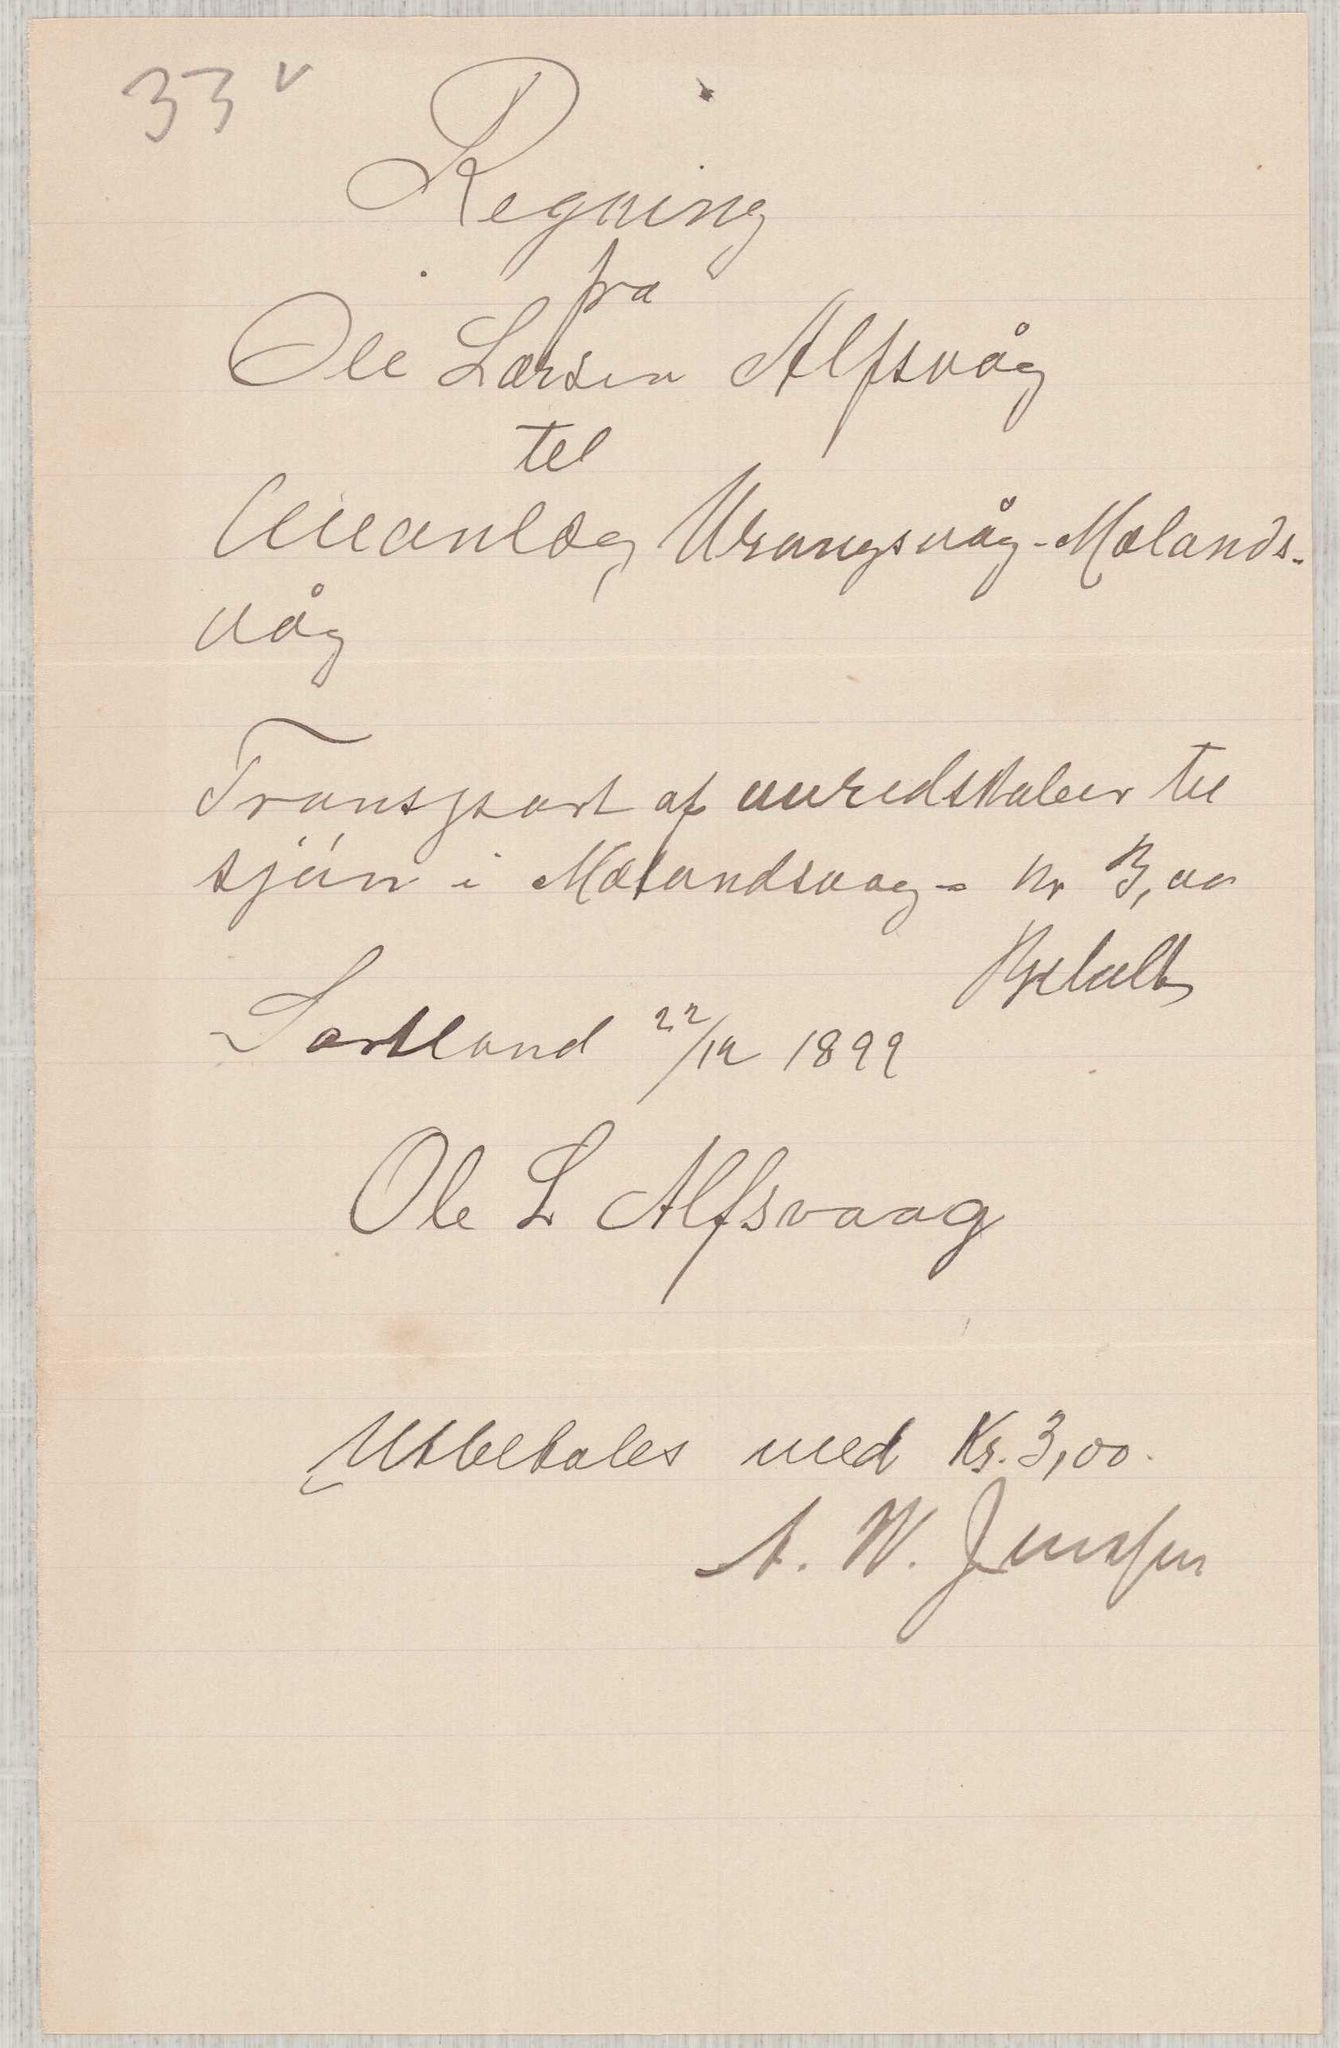 33 v
Regning
fra
Ole Larsen Alfsvåg
til
Veianlæg Urangsvåg-Mælands-
våg
Transport af veiredskaber til
sjøen i Mælandsvaag = Kr 3,00
Betalt
Sortland 22/12 1899
Ole L Alfsvaag
Utbetales med Kr. 3,00.
A. W. Jenssen